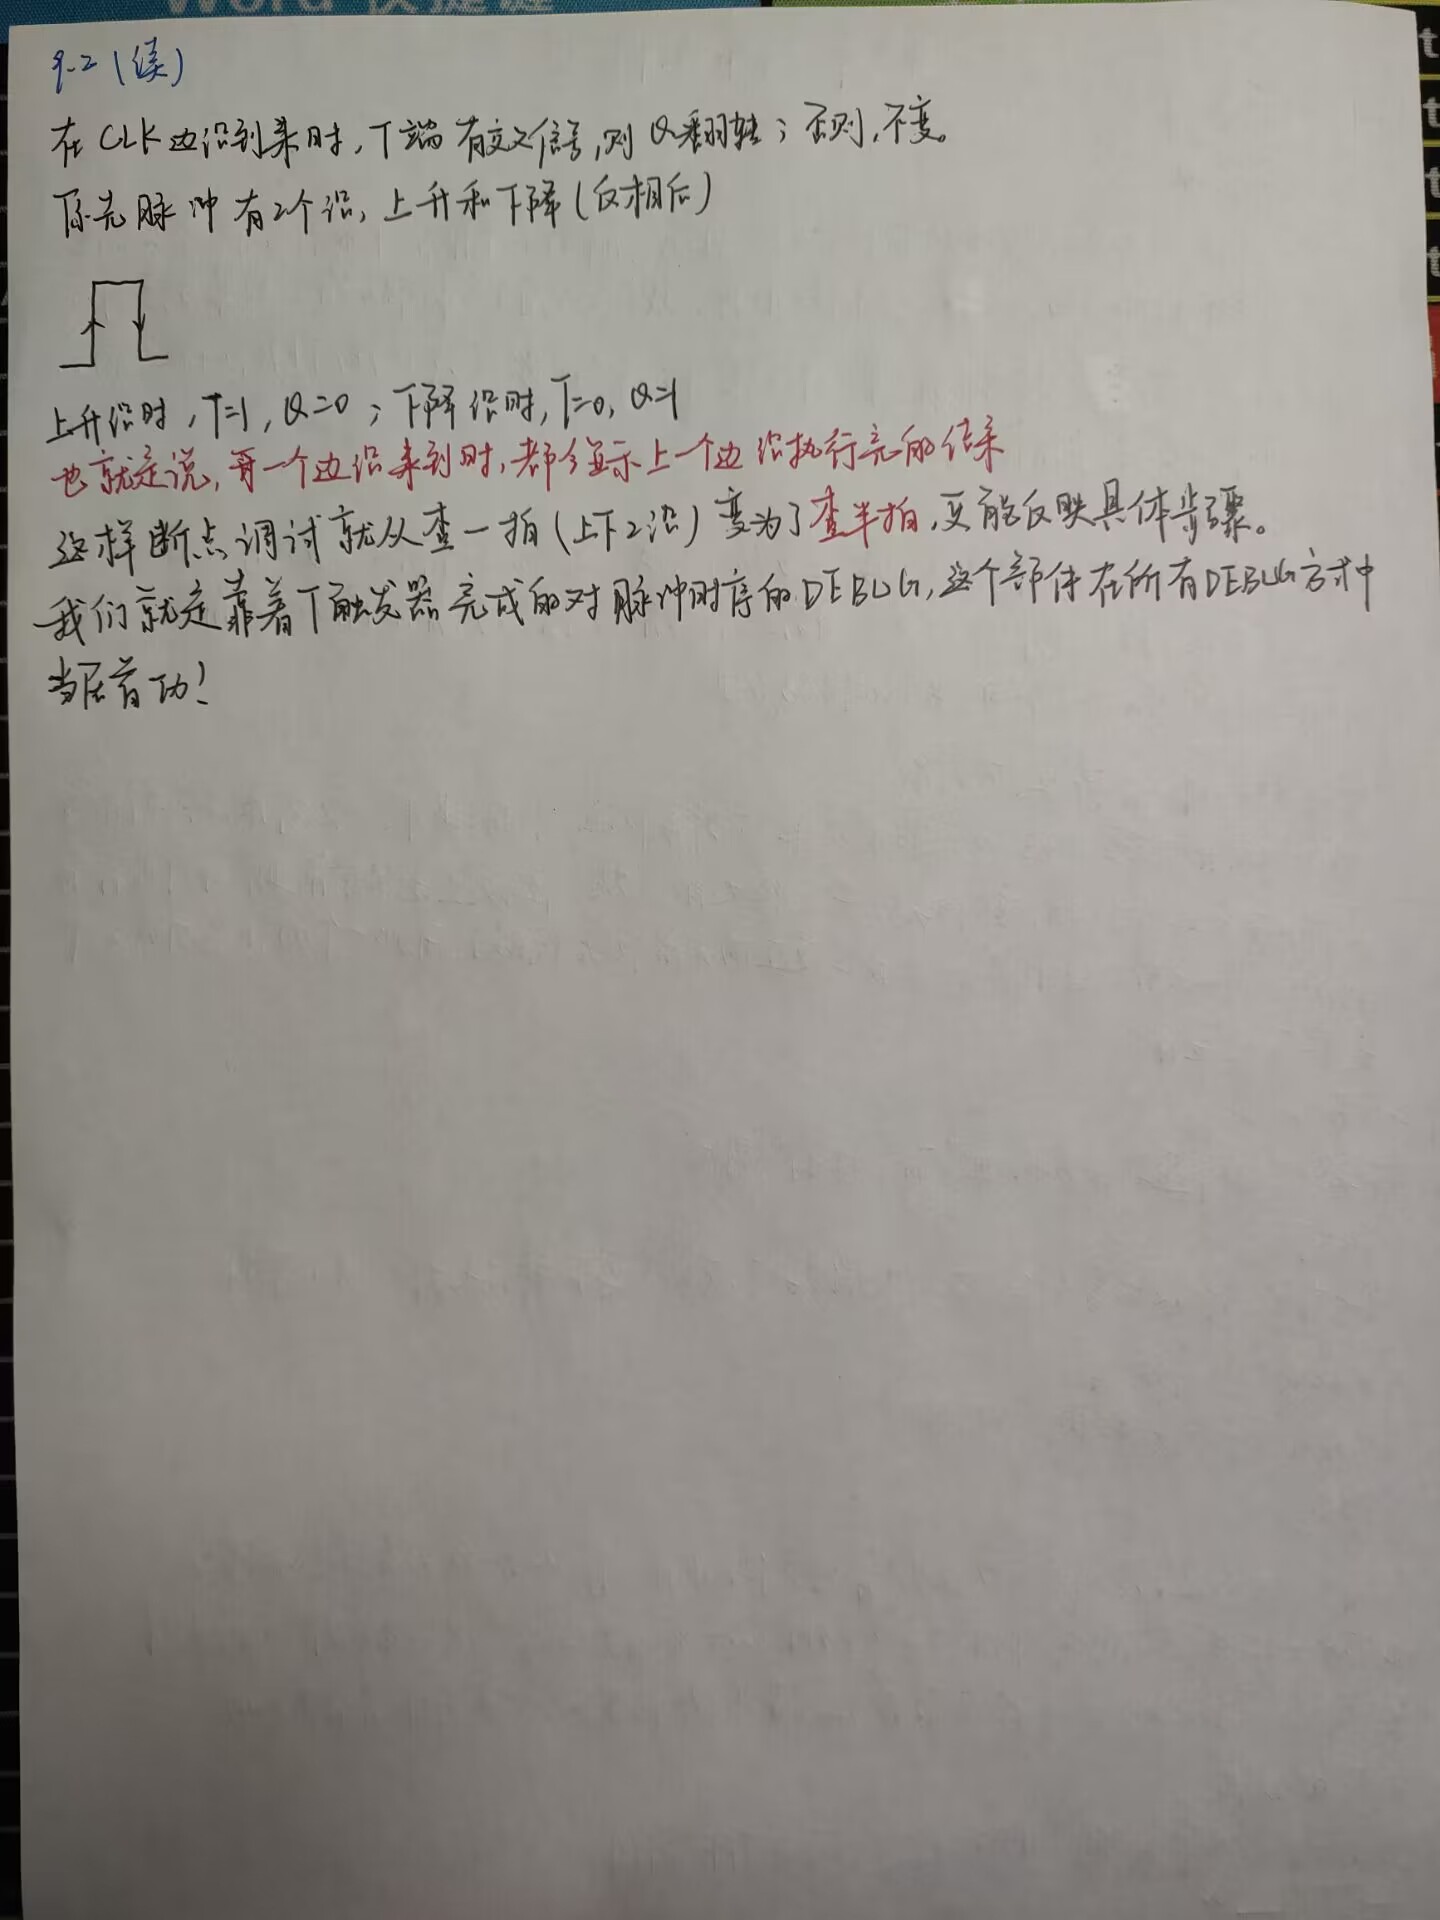 Word 快捷键
9.2(续)
在CLK边沿到来时,T端有效信号,则Q翻转;否则,不变。
原先脉冲有2个沿,上升和下降(反相后)
上升沿时,T=1,Q=0;下降沿时,T=0,Q=1
也就是说,每一个边沿来到时,都会显示上一个边沿执行完的结果
这样断点调试就从查一拍(上下2沿)变为了查半拍,更能反映具体步骤。
我们就是靠着T触发器完成的对脉冲时序的DEBUG,这个部件在所有DEBUG方式中
当居首功!